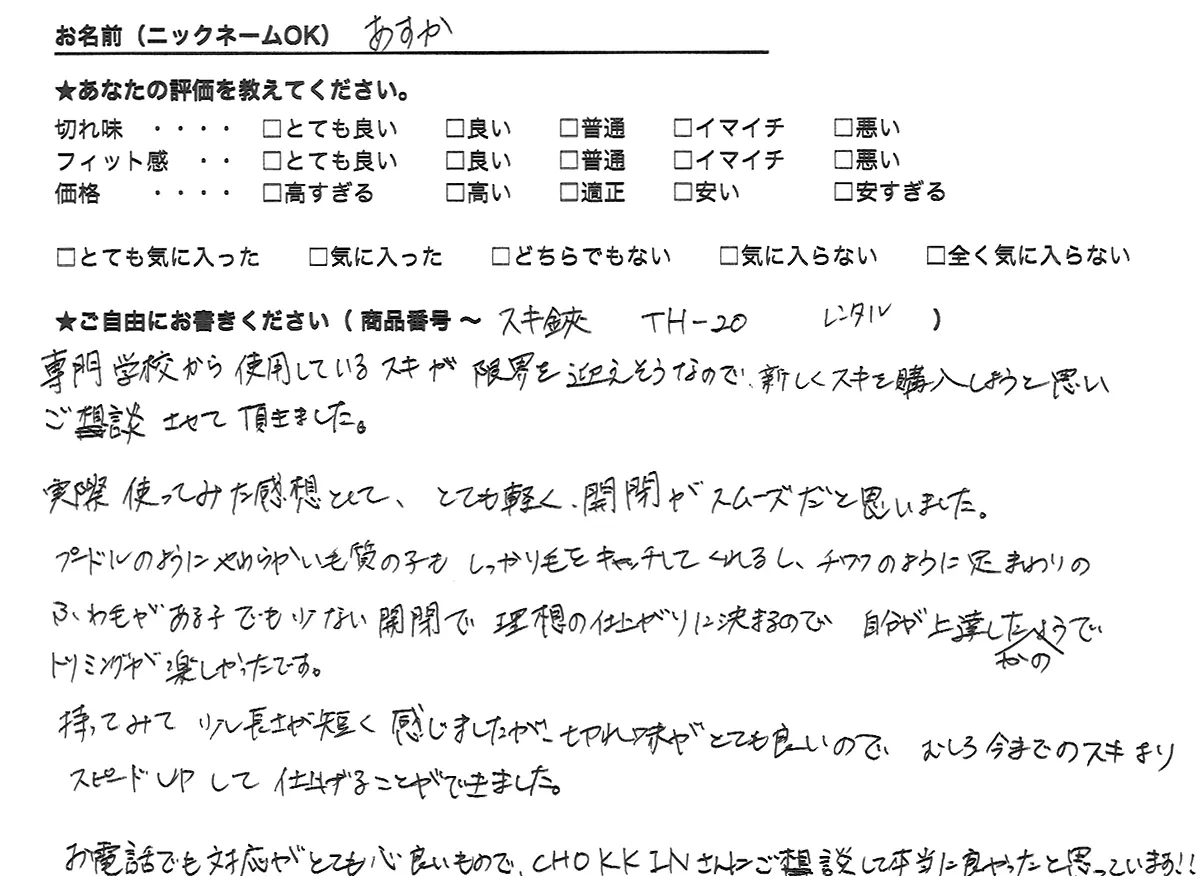 お名前（ニックネームOK） あすか
★あなたの評価を教えてください。
切れ味 ・・・・ □とても良い □良い □普通 □イマイチ □悪い
フィット感 ・・ □とても良い □良い □普通 □イマイチ □悪い
価格 ・・・・ □高すぎる □高い □適正 □安い □安すぎる
□とても気に入った □気に入った □どちらでもない □気に入らない □全く気に入らない
★ご自由にお書きください（ 商品番号 ～ スキ鋏 TH-20 レンタル ）
専門学校から使用しているスキが限界を迎えそうなので、新しくスキを購入しようと思い
ご相談させて頂きました。
実際使ってみた感想として、とても軽く、開閉がスムーズだと思いました。
プードルのようにやわらかい毛質の子もしっかり毛をキャッチしてくれるし、チワワのように足まわりの
ふわ毛がある子でも少ない開閉で理想の仕上がりに決まるので 自分が上達したかのようで
トリミングが楽しかったです。
持ってみて少し長さが短く感じましたが、切れ味がとても良いので、むしろ今までのスキより
スピードUPして仕上げることができました。
お電話でも対応がとても心良いもので、CHOKKINさんにご相談して本当に良かったと思っています!!